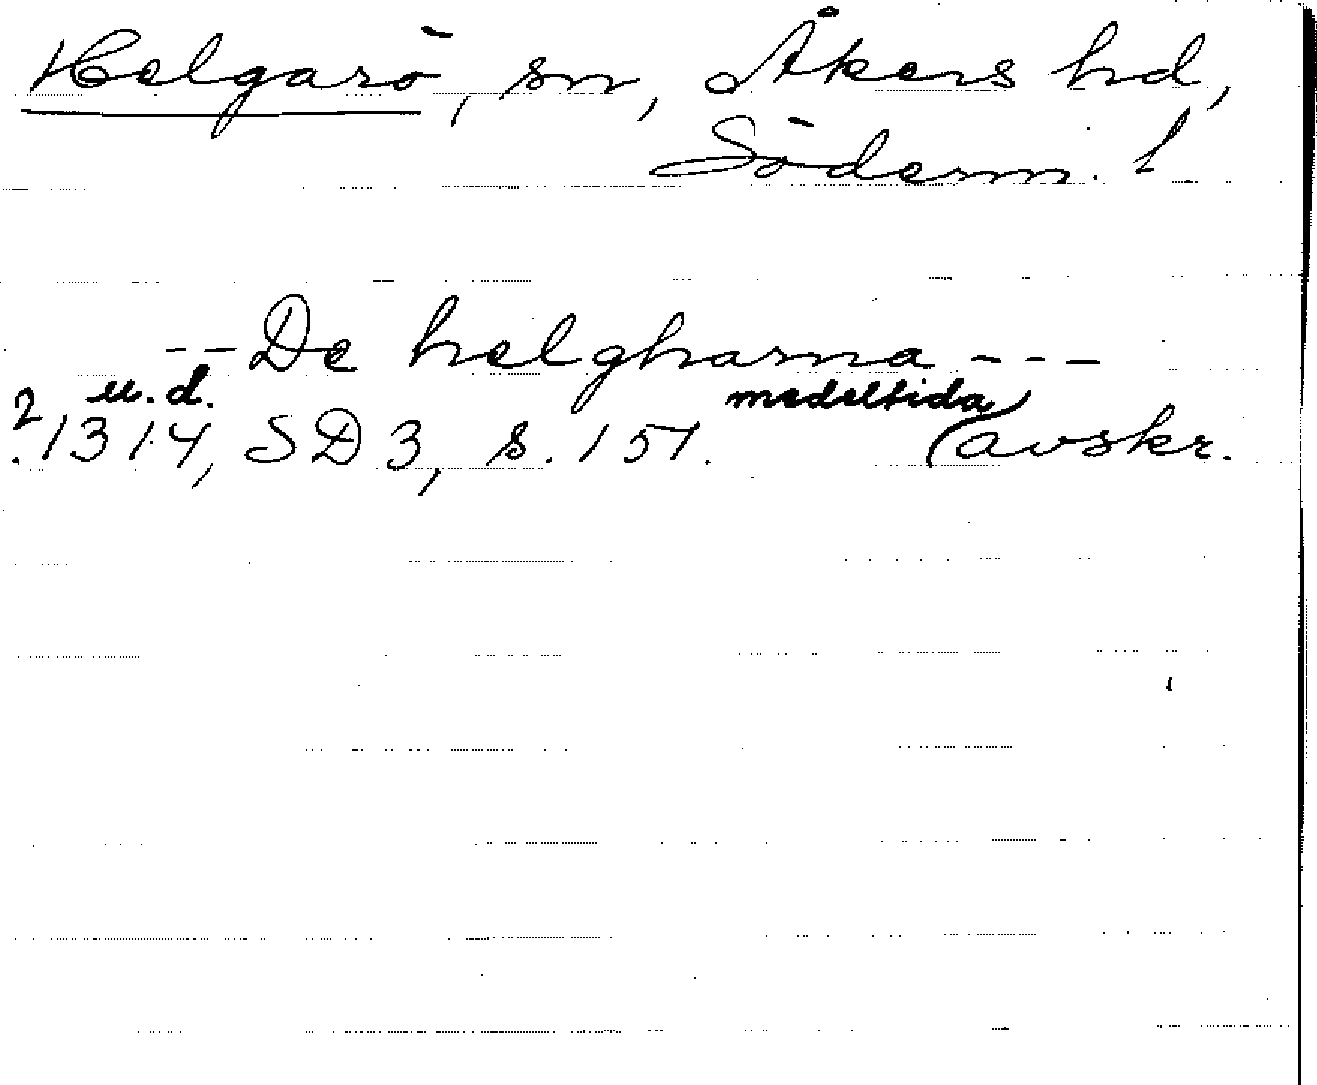 Helgarö, sn, Åkers hd,
Söderm. l
-- De helgharna ---
u.d. medeltida
? 1314, SD 3, s. 151. (avskr.